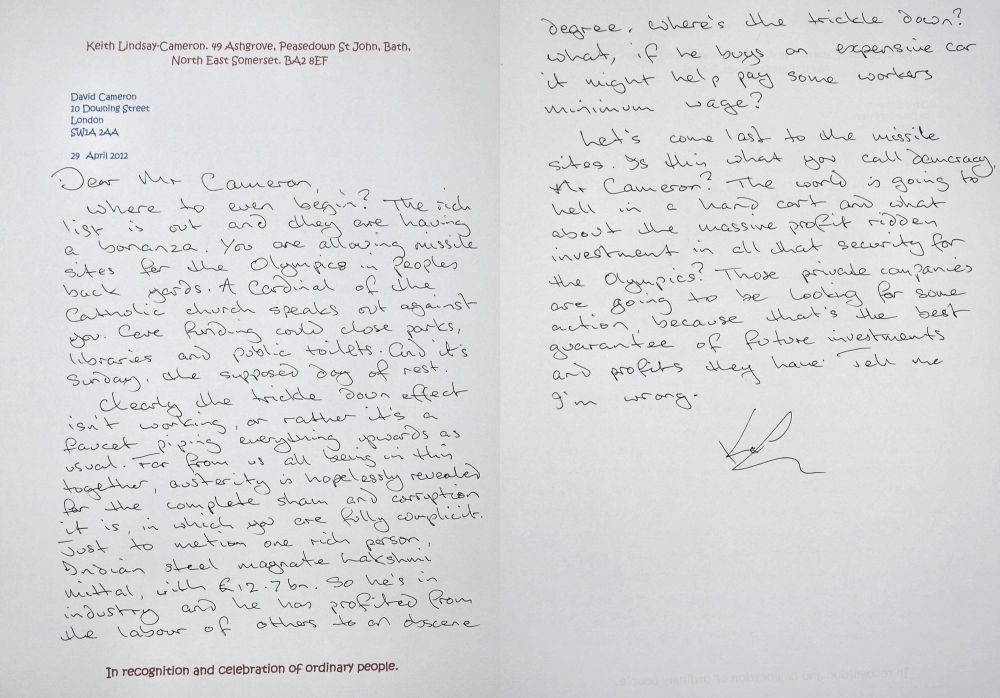 Keith Lindsay-Cameron. 49 Ashgrove, Peasedown St John, Bath,
North East Somerset. BA2 8EF
David Cameron
10 Downing Street
London
SW1A 2AA
29 April 2012
Dear Mr Cameron,
Where to even begin? The rich
list is out and they are having
a bonanza. You are allowing missile
sites for the Olympics in Peoples
back yards. A Cardinal of the
Catholic church speaks out against
you. Care funding could close parks,
libraries and public toilets. And it's
Sunday, the supposed day of rest.
Clearly the trickle down effect
isn't working, or rather it's a
faucet piping everything upwards as
usual. Far from us all being in this
together, austerity is hopelessly revealed
for the complete sham and corruption
it is, in which you are fully complicit.
Just to metion one rich person,
Indian steel magnate Lakshmi
Mittal, with £12.7bn. So he's in
industry and he has profited from
the labour of others to an obscene
In recognition and celebration of ordinary people.
degree, where's the trickle down?
What, if he buys an expensive car
it might help pay some workers
minimum wage?
Let's come last to the missile
sites. Is this what you call democracy,
Mr Cameron? The world is going to
hell in a hand cart and what
about the massive profit ridden
investment in all that security for
the Olympics? Those private companies
are going to be looking for some
action, because that's the best
guarantee of future investments
and profits they have. Tell me
I'm wrong.